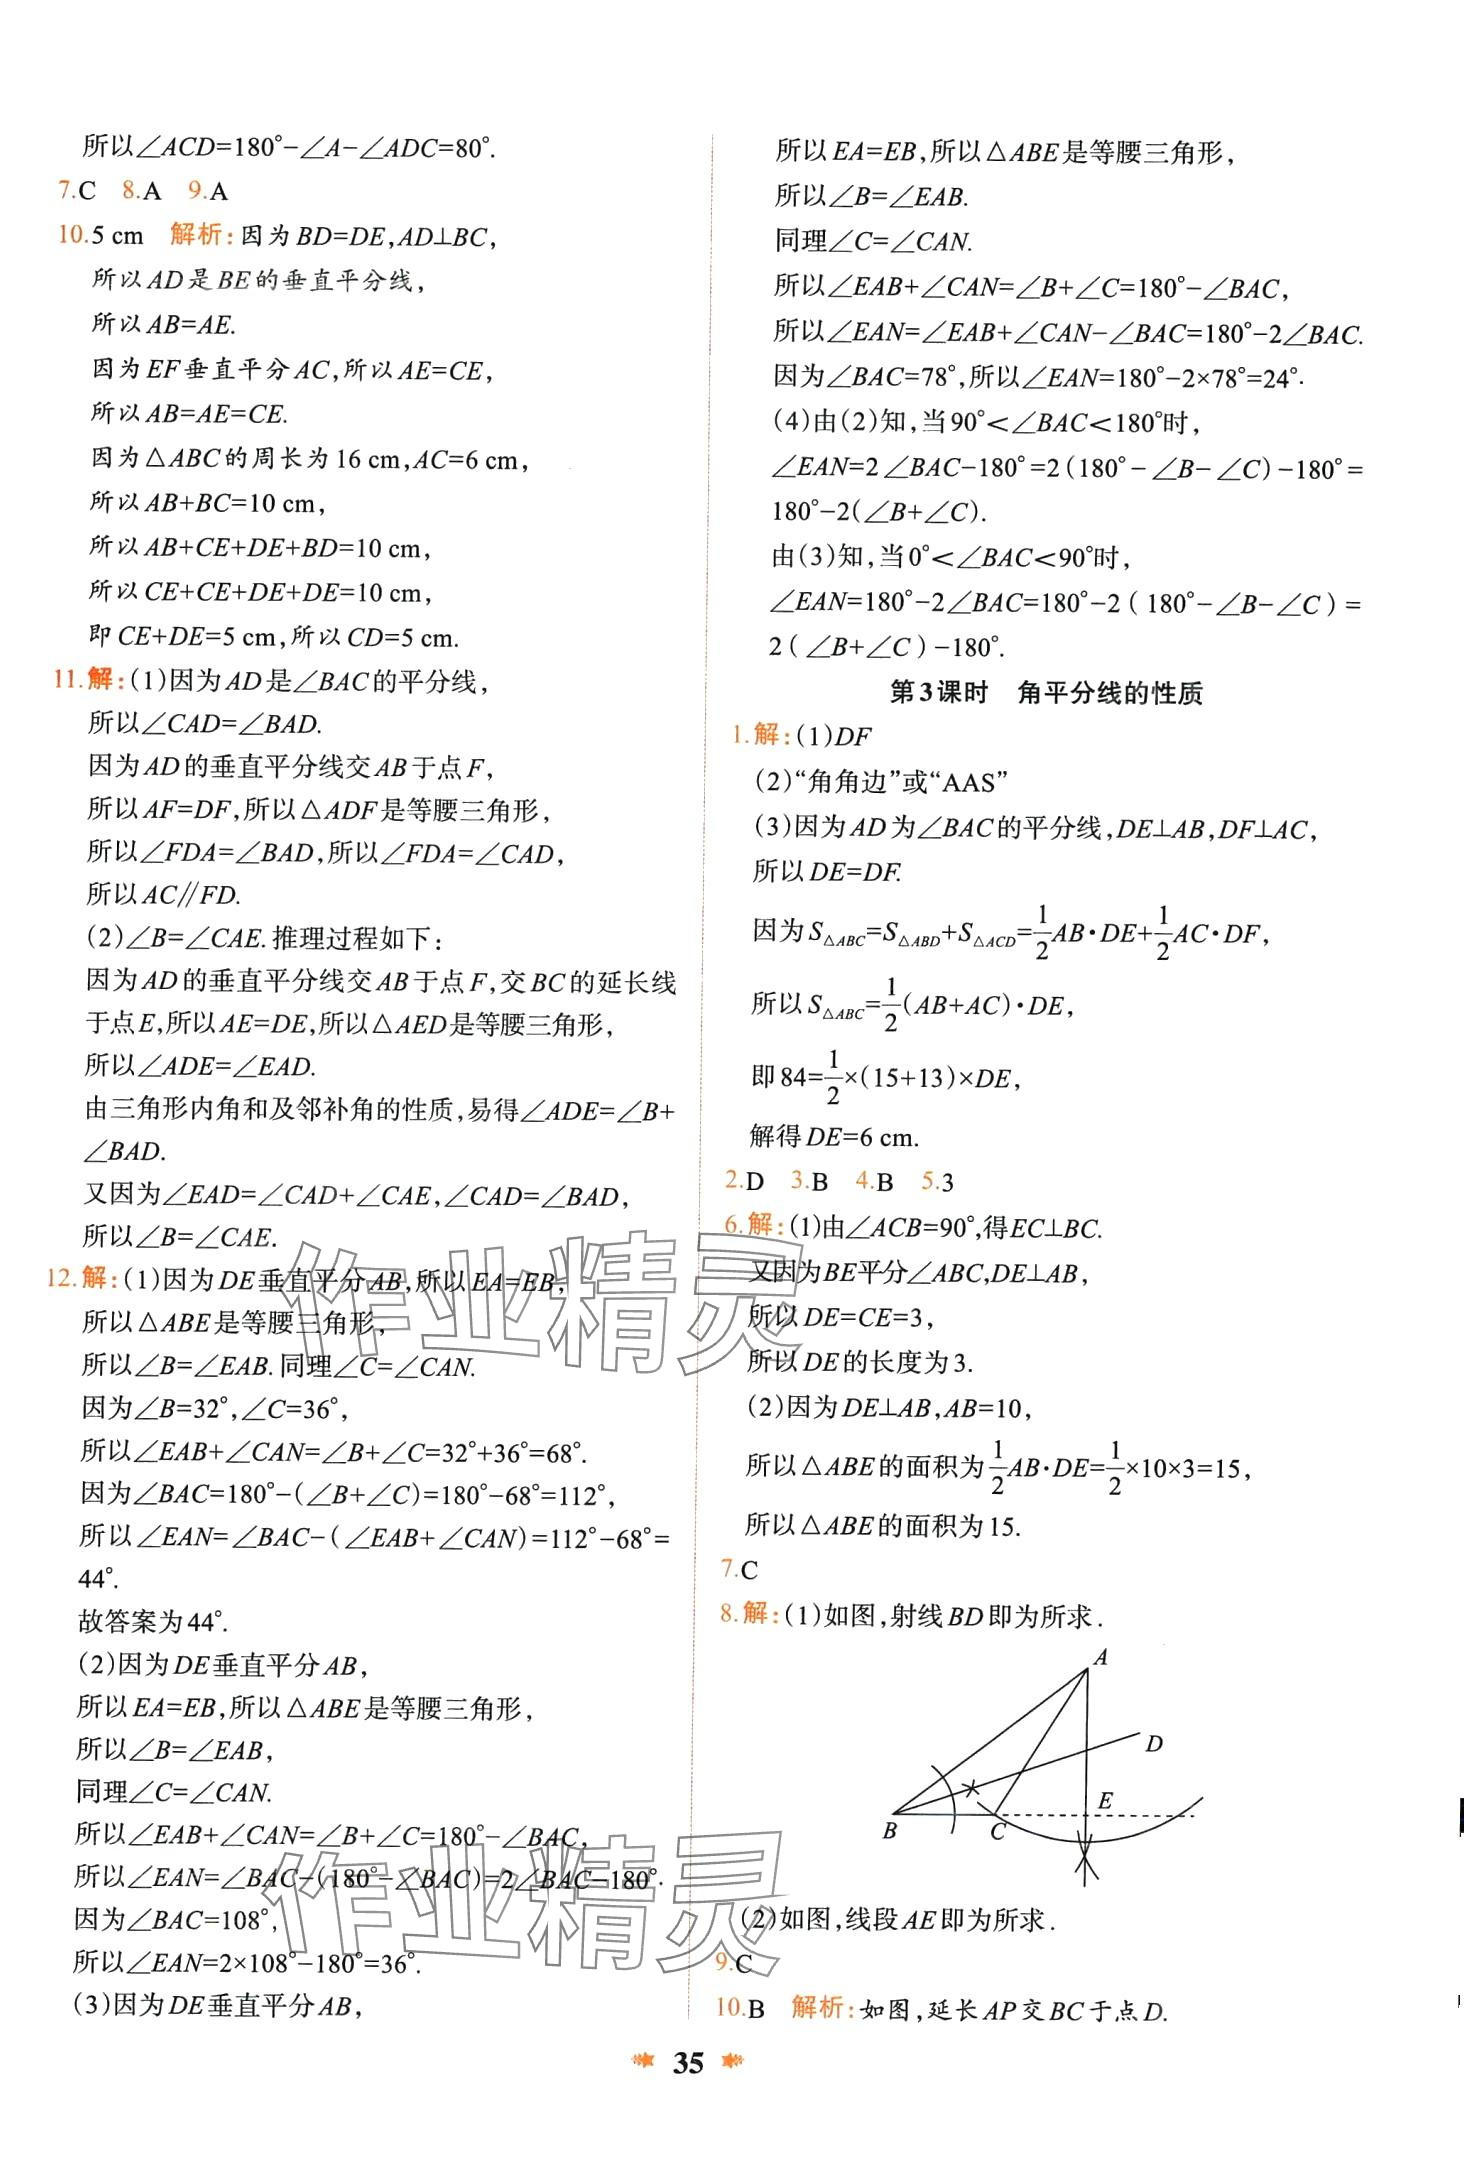 所以∠ACD=180°-∠A-∠ADC=80°.
7.C 8.A 9.A
10.5 cm 解析:因为BD=DE,AD⊥BC,
所以AD是BE的垂直平分线,
所以AB=AE.
因为EF垂直平分AC,所以AE=CE,
所以AB=AE=CE.
因为△ABC的周长为16 cm,AC=6 cm,
所以AB+BC=10 cm,
所以AB+CE+DE+BD=10 cm,
所以CE+CE+DE+DE=10 cm,
即CE+DE=5 cm,所以CD=5 cm.
11.解:(1)因为AD是∠BAC的平分线,
所以∠CAD=∠BAD.
因为AD的垂直平分线交AB于点F,
所以AF=DF,所以△ADF是等腰三角形,
所以∠FDA=∠BAD,所以∠FDA=∠CAD,
所以AC∥FD.
(2)∠B=∠CAE.推理过程如下:
因为AD的垂直平分线交AB于点F,交BC的延长线
于点E,所以AE=DE,所以△AED是等腰三角形,
所以∠ADE=∠EAD.
由三角形内角和及邻补角的性质,易得∠ADE=∠B+
∠BAD.
又因为∠EAD=∠CAD+∠CAE,∠CAD=∠BAD,
所以∠B=∠CAE.
12.解:(1)因为DE垂直平分AB,所以EA=EB,
所以△ABE是等腰三角形,
所以∠B=∠EAB.同理∠C=∠CAN.
因为∠B=32°,∠C=36°,
所以∠EAB+∠CAN=∠B+∠C=32°+36°=68°.
因为∠BAC=180°-(∠B+∠C)=180°-68°=112°,
所以∠EAN=∠BAC-(∠EAB+∠CAN)=112°-68°=
44°.
故答案为44°.
(2)因为DE垂直平分AB,
所以EA=EB,所以△ABE是等腰三角形,
所以∠B=∠EAB,
同理∠C=∠CAN.
所以∠EAB+∠CAN=∠B+∠C=180°-∠BAC,
所以∠EAN=∠BAC-(180°-∠BAC)=2∠BAC-180°.
因为∠BAC=108°,
所以∠EAN=2×108°-180°=36°.
(3)因为DE垂直平分AB,
所以EA=EB,所以△ABE是等腰三角形,
所以∠B=∠EAB.
同理∠C=∠CAN.
所以∠EAB+∠CAN=∠B+∠C=180°-∠BAC,
所以∠EAN=∠EAB+∠CAN-∠BAC=180°-2∠BAC.
因为∠BAC=78°,所以∠EAN=180°-2×78°=24°.
(4)由(2)知,当90°<∠BAC<180°时,
∠EAN=2∠BAC-180°=2(180°-∠B-∠C)-180°=
180°-2(∠B+∠C).
由(3)知,当0°<∠BAC<90°时,
∠EAN=180°-2∠BAC=180°-2(180°-∠B-∠C)=
2(∠B+∠C)-180°.
第3课时 角平分线的性质
1.解:(1)DF
(2)“角角边”或“AAS”
(3)因为AD为∠BAC的平分线,DE⊥AB,DF⊥AC,
所以DE=DF.
因为S△ABC=S△ABD+S△ACD=1/2AB·DE+1/2AC·DF,
所以S△ABC=1/2(AB+AC)·DE,
即84=1/2×(15+13)×DE,
解得DE=6 cm.
2.D 3.B 4.B 5.3
6.解:(1)由∠ACB=90°,得EC⊥BC.
又因为BE平分∠ABC,DE⊥AB,
所以DE=CE=3,
所以DE的长度为3.
(2)因为DE⊥AB,AB=10,
所以△ABE的面积为1/2AB·DE=1/2×10×3=15,
所以△ABE的面积为15.
7.C
8.解:(1)如图,射线BD即为所求.
A
D
E
B
C
(2)如图,线段AE即为所求.
9.C
10.B 解析:如图,延长AP交BC于点D.
35
作业精灵
作业精灵